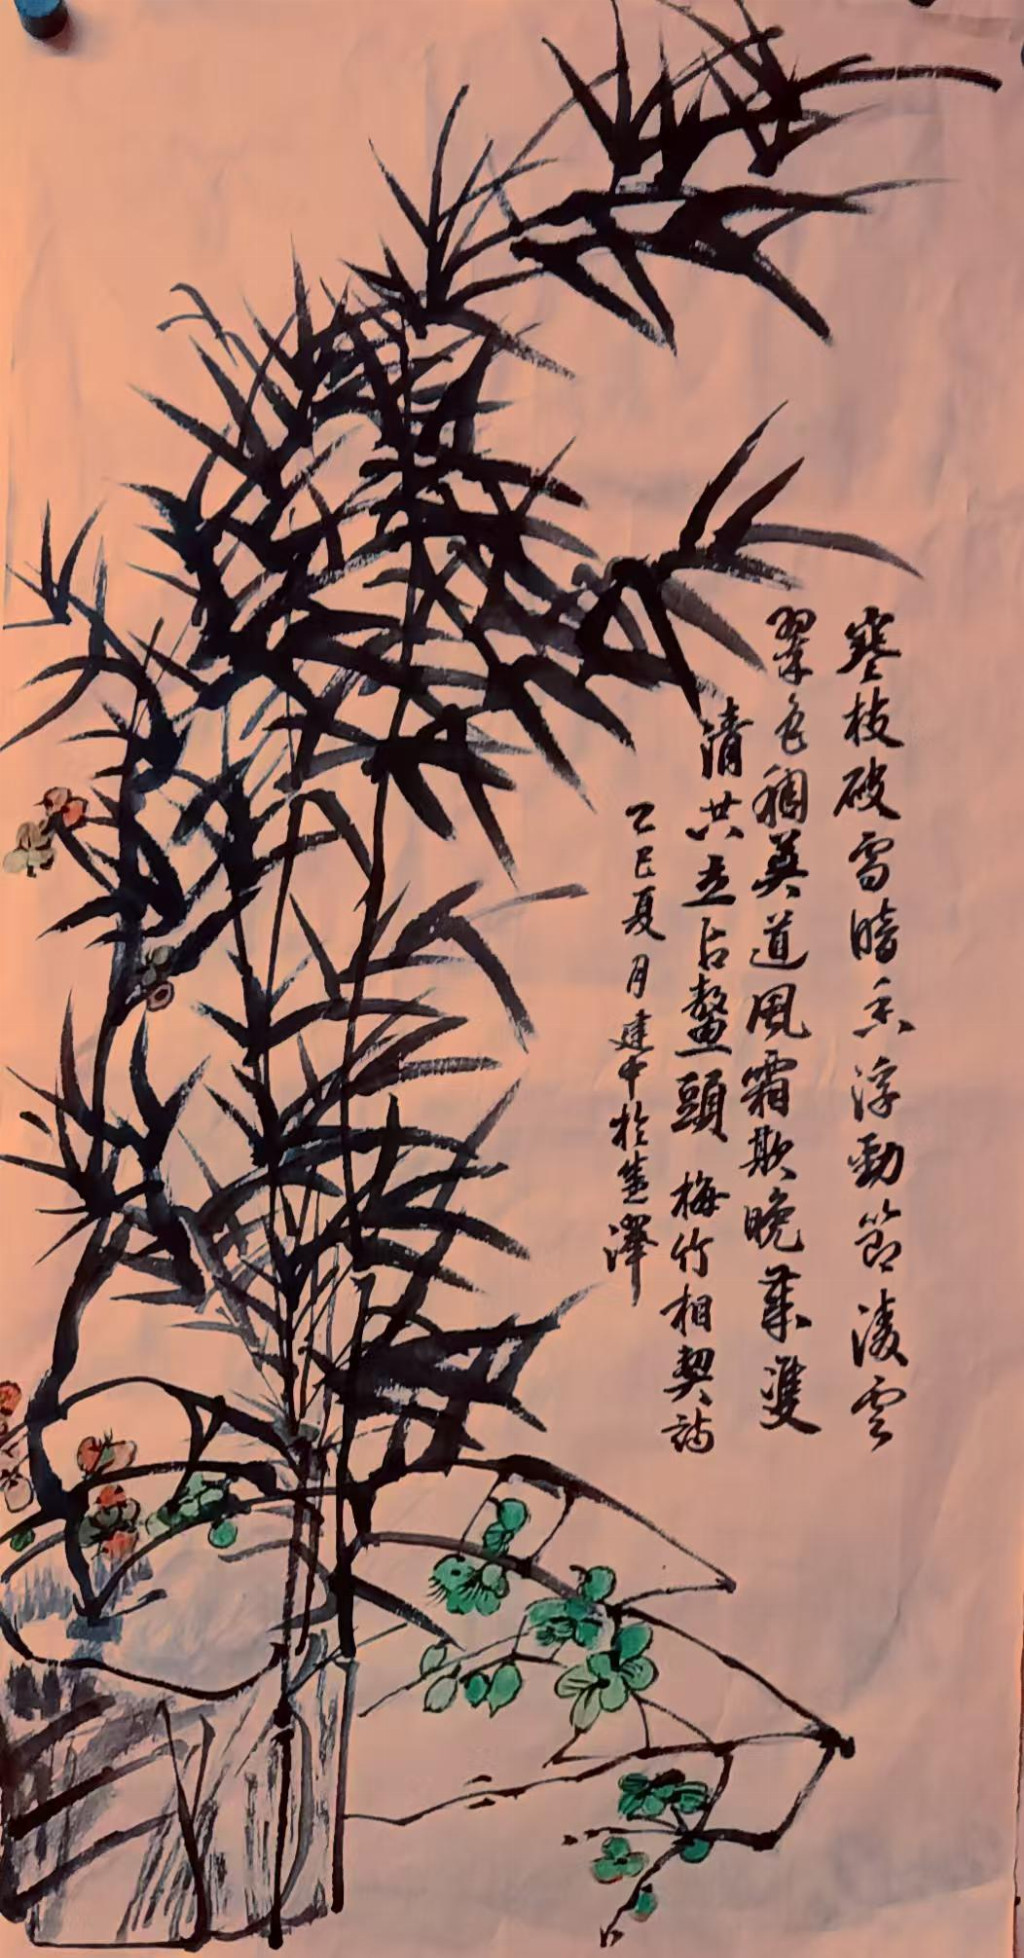 寒枝破雪暗香浮勁節凌雲
翠色稠莫道風霜欺晚葉雙
清共立占鰲頭 梅竹相契詩
乙巳夏月建中於蓮澤